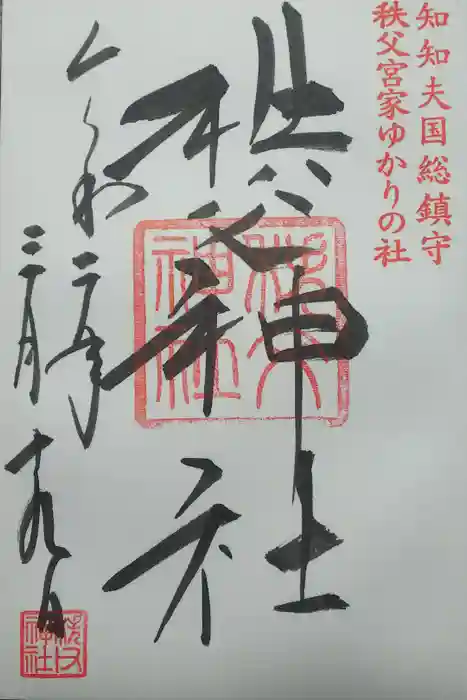 知知夫国総鎮守
秩父宮家ゆかりの社
秩父神社
秩父神社
令和二年
三月十九日
秩父神社